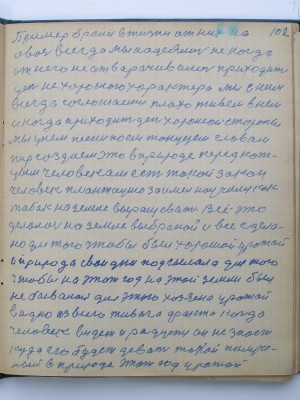 102
Пример брали в жизни от них на
своя всегда мы надеемся не когда
от него не отварачиваемся приходит
дет не хорошего характера мы с ним
всегда соглашаемся плохо живем в нем
и когда приходит дет хорошей стороны
мы поем песни пляски танцуем словом
пир создаем это в природе перед кат-
цым человеком есть такой закон
человек плантацию занимает как
табак на земле выращивать Всё это
делалось на земле выбраной и все сдела-
но для того чтобы был хороший урожай
и природа свои дни подсылала для того
чтобы на этот год на этой земли был
не бывалой для этого хозяина урожай
видно из его живого факта когда
человек видет и радуется он не знает
куда его будет девать такой получе-
ный в природе этот год урожай